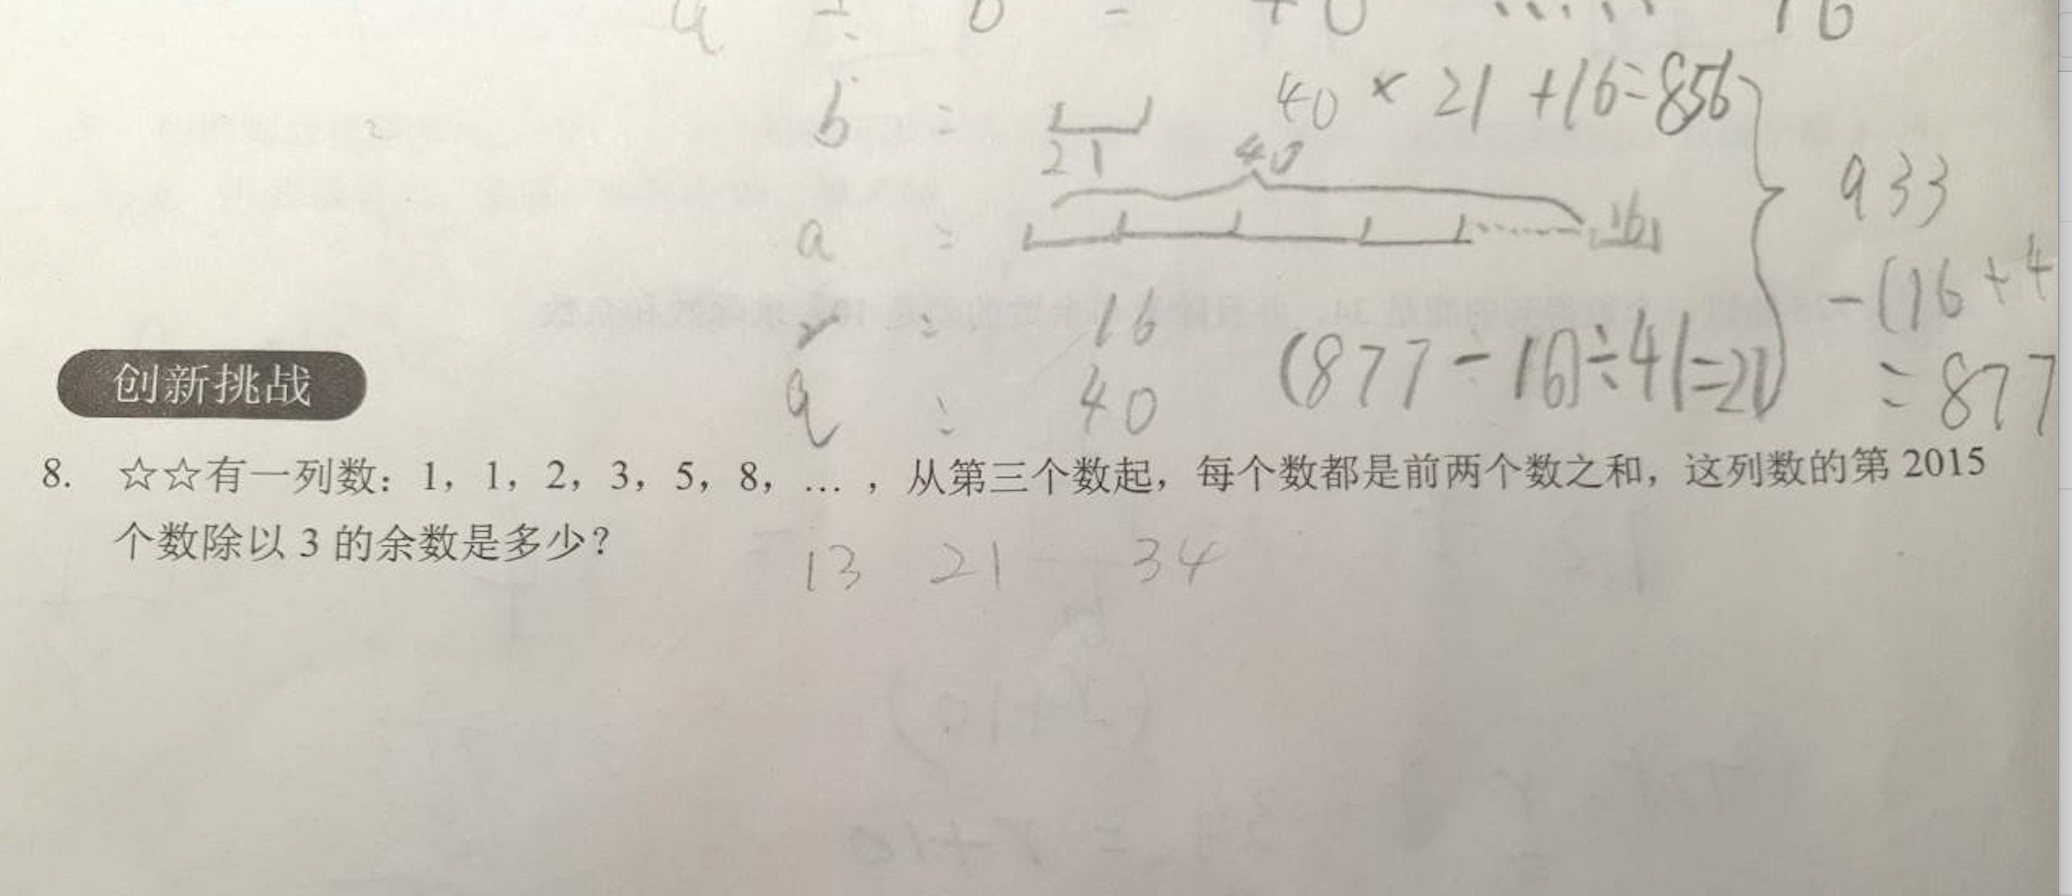 a ÷ b = 40 …… 16
b = 21 40 × 21 + 16 = 856
40
a = 16 933
r = 16 -(16 + 4
q = 40 (877 - 16) ÷ 41 = 21 = 877
创新挑战
8. ☆☆有一列数：1，1，2，3，5，8，…，从第三个数起，每个数都是前两个数之和，这列数的第 2015
个数除以 3 的余数是多少？
13 21 34